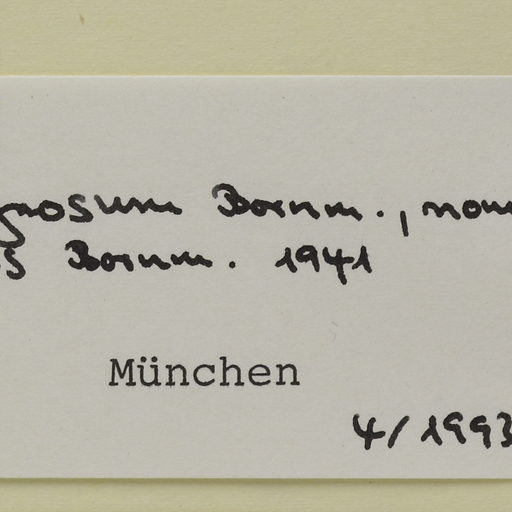 gnosum Bornm., nom
s Bornm. 1941
München
4/1993